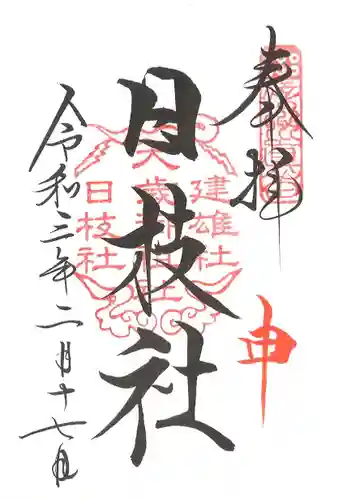 奉拝
申
日枝社
令和三年二月十七日
建雄社
大歳社
日枝社